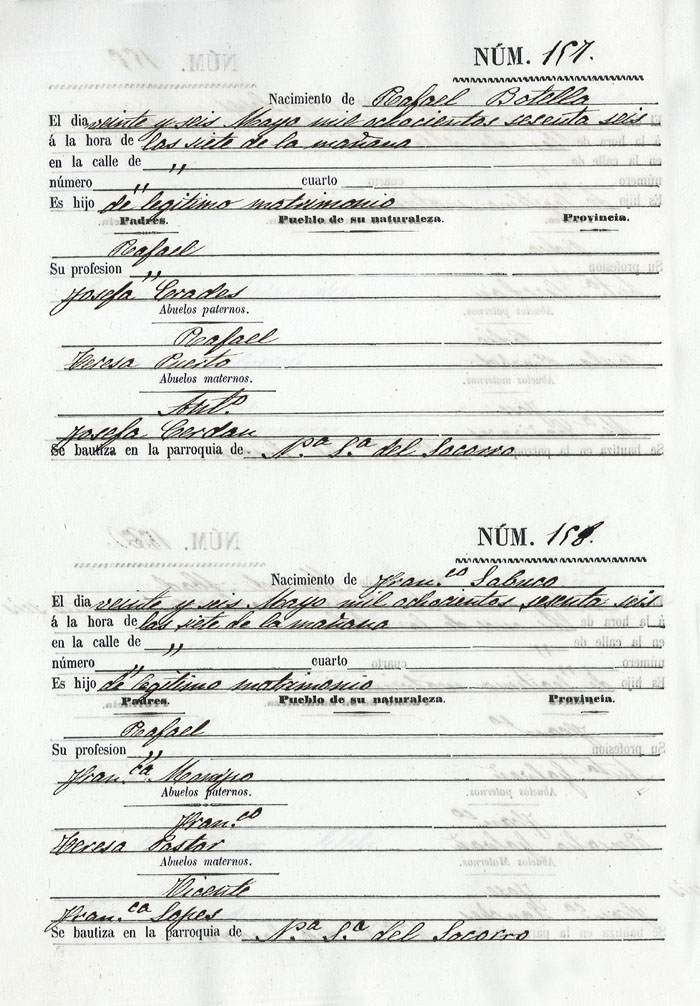 NÚM. 157.
Nacimiento de Rafael Botella
El dia veinte y seis Mayo mil ochocientos sesenta seis
á la hora de las siete de la mañana
en la calle de „
número „ cuarto
Es hijo de legitimo matrimonio
Padres. Pueblo de su naturaleza. Provincia.
Rafael
Su profesion „
Josefa
Abuelos paternos.
Rafael
Teresa Puerto
Abuelos maternos.
Ant.º
Josefa Cerdan
Se bautiza en la parroquia de N.ª S.ª del Socorro
NÚM. 158.
Nacimiento de Fran.co Sabuco
El dia veinte y seis Mayo mil ochocientos sesenta seis
á la hora de las siete de la mañana
en la calle de „
número „ cuarto
Es hijo de legitimo matrimonio
Padres. Pueblo de su naturaleza. Provincia.
Rafael
Su profesion „
Fran.ca
Abuelos paternos.
Fran.co
Teresa Pastor
Abuelos maternos.
Vicente
Fran.ca Lopes
Se bautiza en la parroquia de N.ª S.ª del Socorro